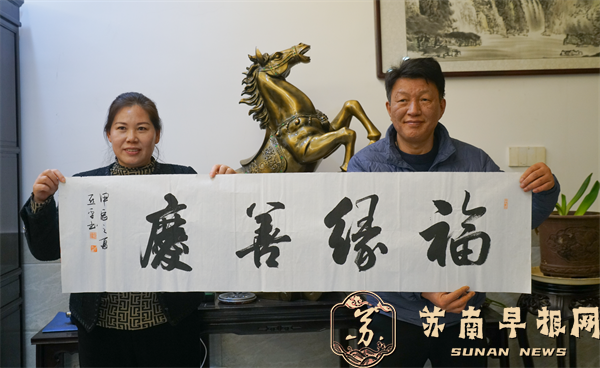 福緣善慶
甲辰之夏
苏南早报网
SUNAN NEWS